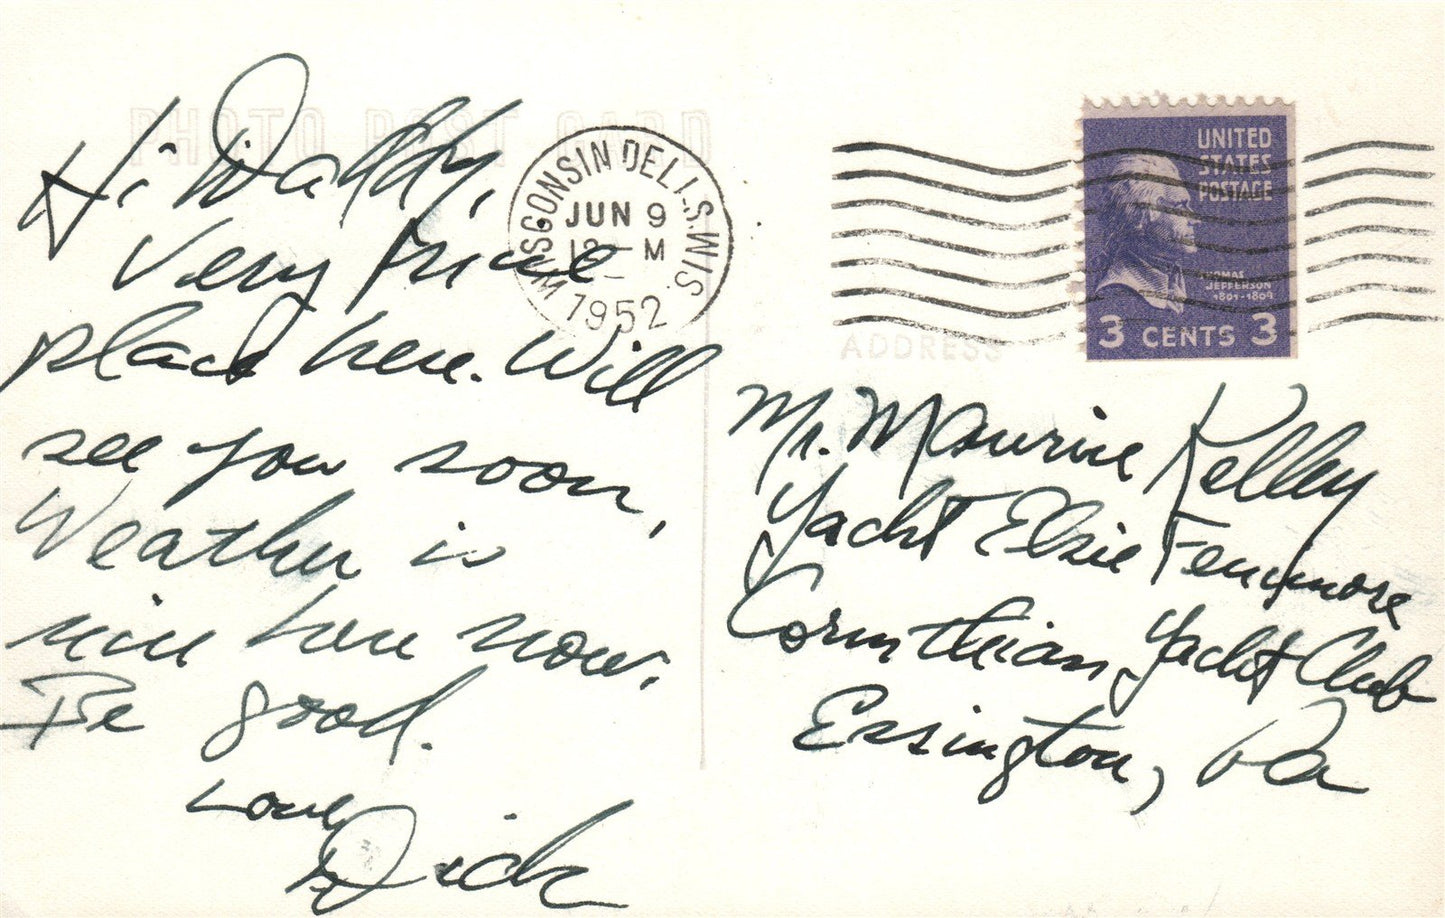 PHOTO POST CARD
Hi Daddy,
Very fine
place here. Will
see you soon.
Weather is
nice here now.
Be good.
Love
Dick
WISCONSIN DELLS. WIS.
JUN 9
12 — M
1952
UNITED
STATES
POSTAGE
THOMAS
JEFFERSON
1801-1809
3 CENTS 3
ADDRESS
Mr. Maurice Kelley
Yacht Elsie Fenimore
Corinthian Yacht Club
Essington, Pa